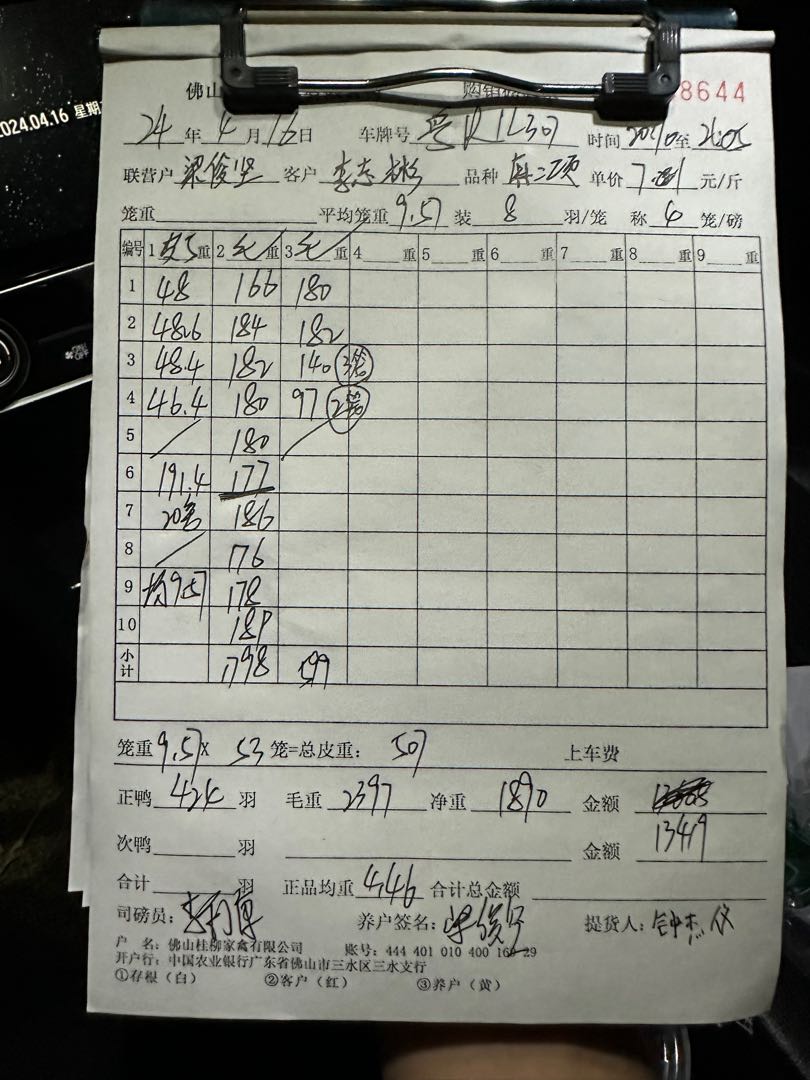 2024.04.16 星期
佛山 购销 8644
24 年 4 月 16 日 车牌号 R1L307 时间 至 21:05
联营户 梁俊坚 客户 李志彬 品种 单价 7. 元/斤
笼重 平均笼重 9.57 装 8 羽/笼 称 6 笼/磅
编号 1 重 2 毛 重 3 毛 重 4 重 5 重 6 重 7 重 8 重 9 重
1 48 166 180
2 48.6 184 182
3 48.4 182 140 3笼
4 46.4 180 97 2笼
5 180
6 191.4 177
7 20笼 186
8 176
9 均9.57 178
10 189
小计 1798 599
笼重 9.57 X 53 笼=总皮重: 507 上车费
正鸭 424 羽 毛重 2397 净重 1890 金额
次鸭 羽 金额 13419
合计 羽 正品均重 4.46 合计总金额
司磅员: 养户签名: 梁俊坚 提货人: 钟杰仪
户 名: 佛山桂柳家禽有限公司 账号: 444 401 010 400 160 29
开户行: 中国农业银行广东省佛山市三水区三水支行
①存根(白) ②客户(红) ③养户(黄)